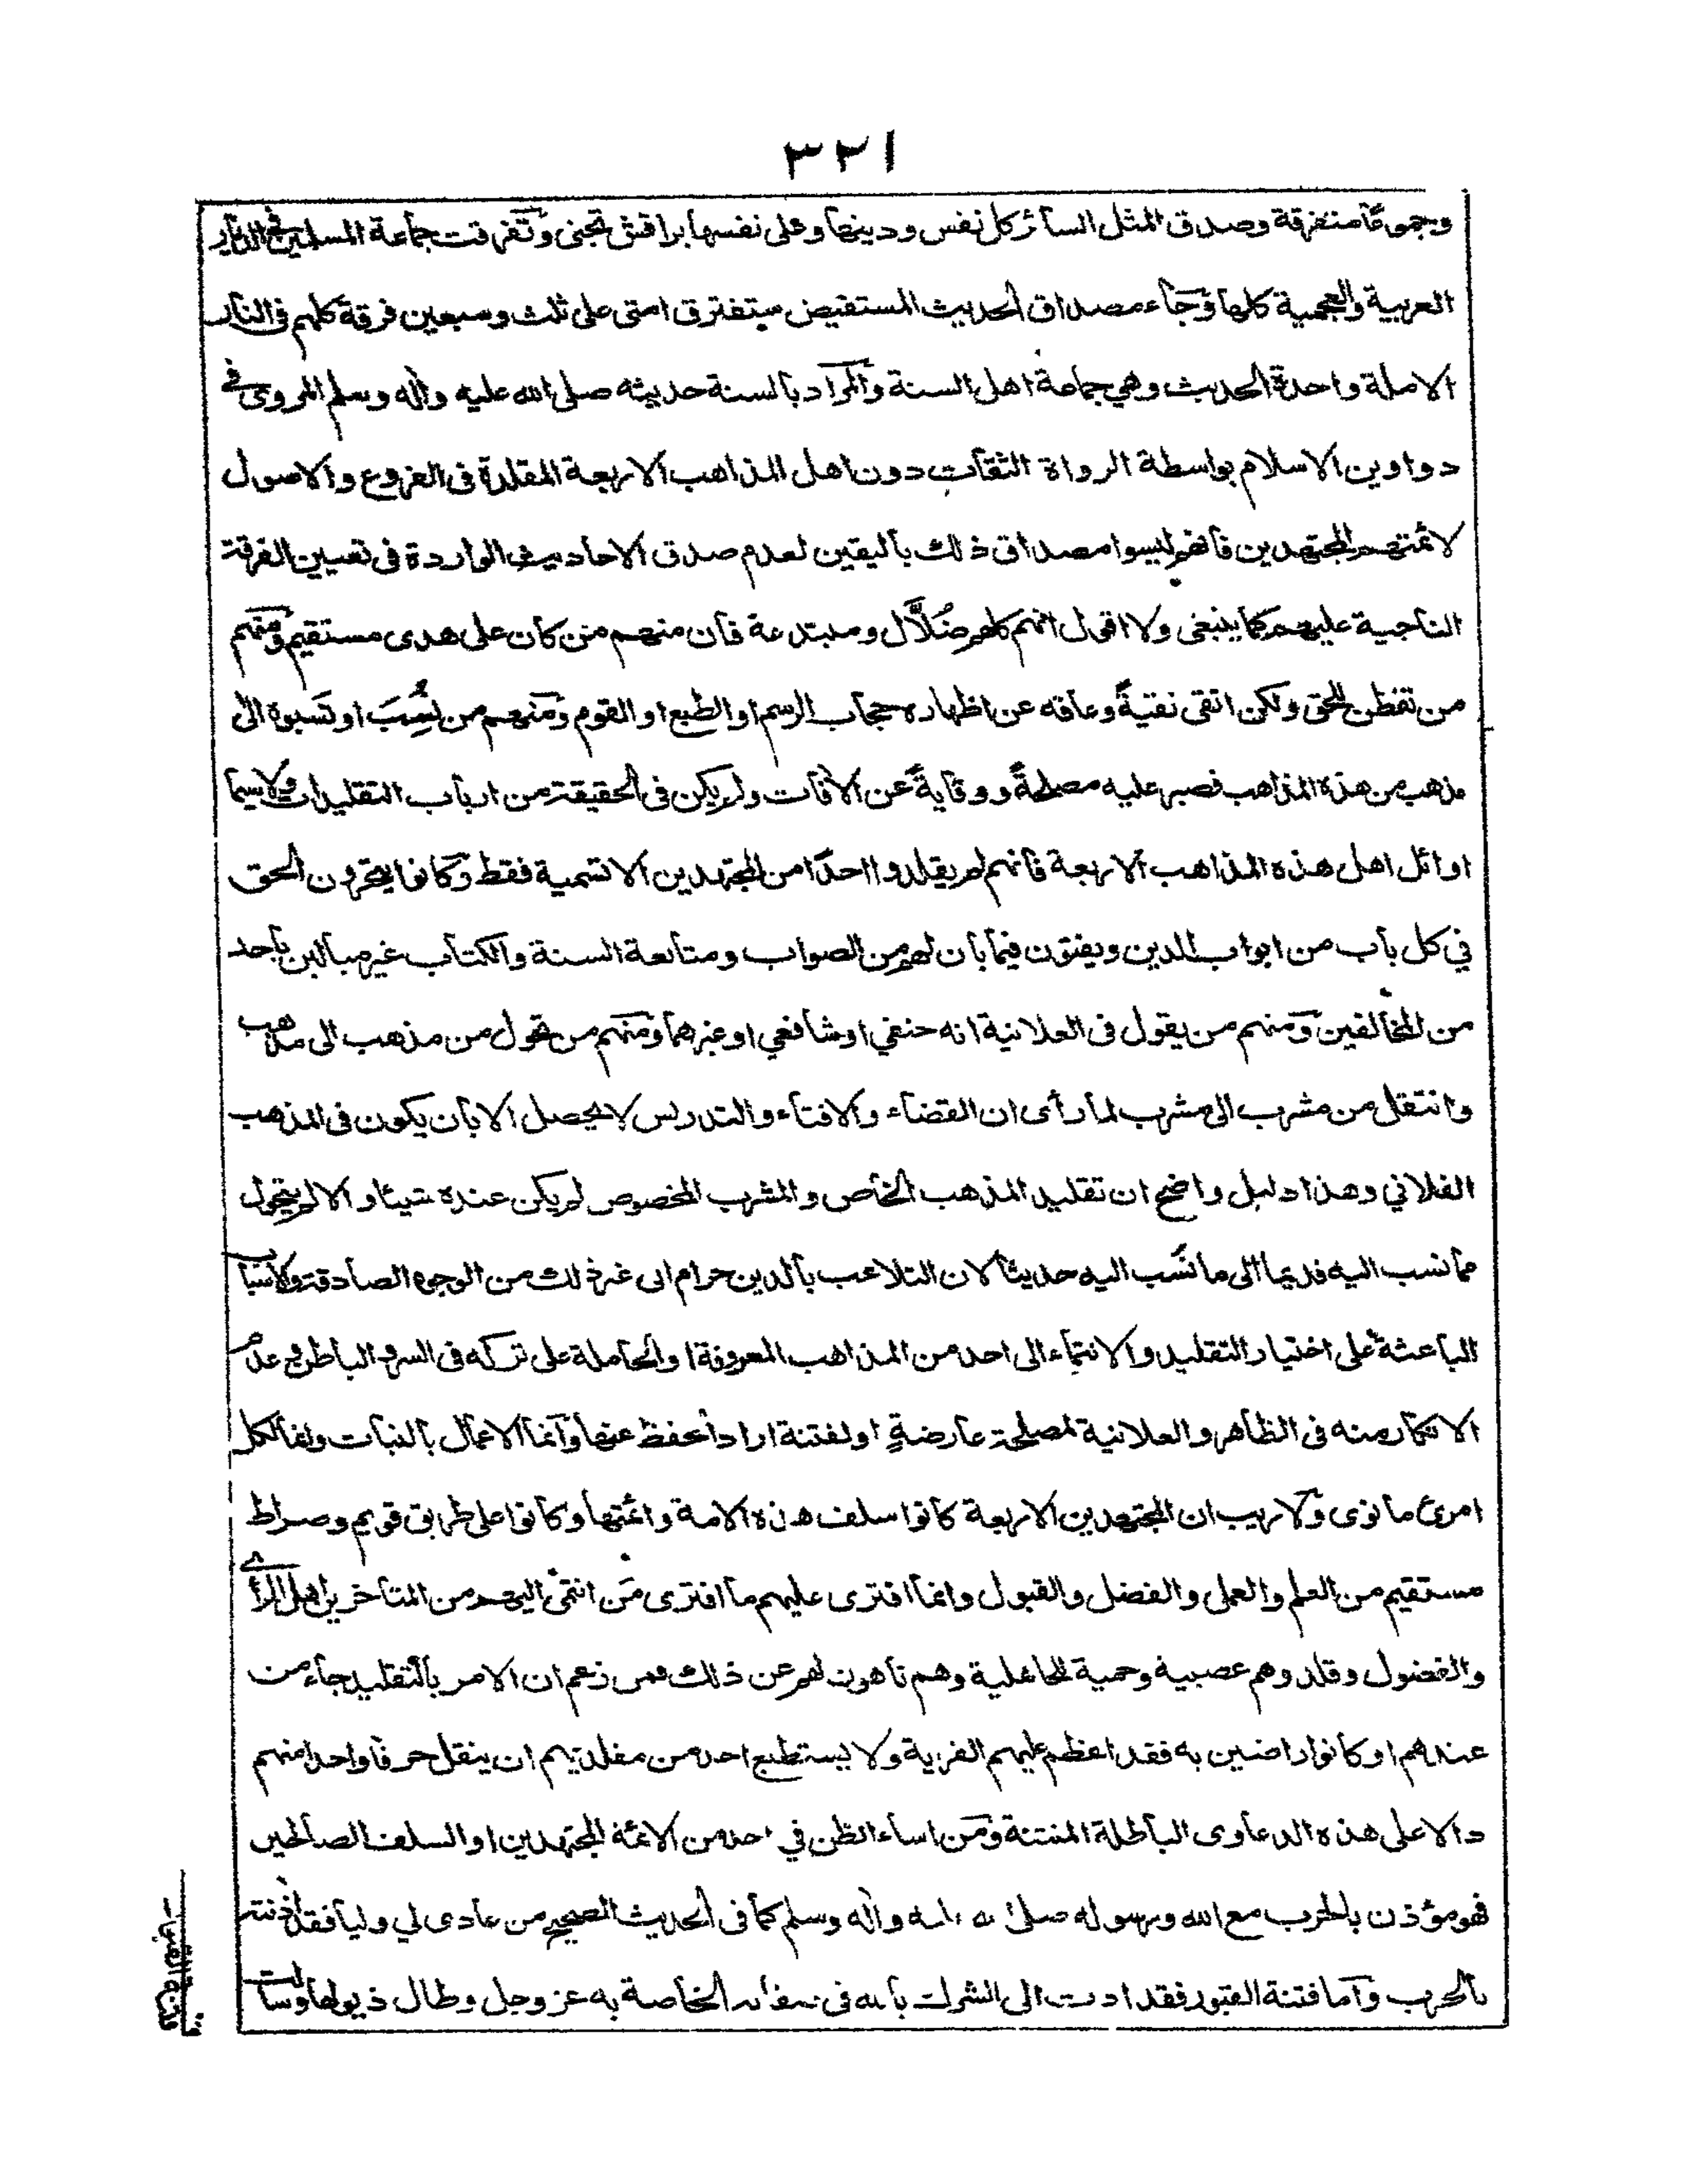 ٣٢١
وجموعًا متفرقة وصدق المثل السائر كل نفس ودينها وعلى نفسها براقش تجنى وتفرقت جماعة المسلمين فى الديار
العربية والعجمية كلها وجاء مصداق الحديث المستفيض ستفترق امتى على ثلث وسبعين فرقة كلهم فى النار
الاملة واحدة الحديث وهي جماعة اهل السنة والمراد بالسنة حديثه صلى الله عليه واله وسلم المروى فى
دواوين الاسلام بواسطة الرواة الثقات دون اهل المذاهب الاربعة المقلدة فى الفروع والاصول
لائمتهم المجتهدين فانهم ليسوا مصداق ذلك باليقين لعدم صدق الاحاديث الواردة فى تعيين الفرقة
الناجية عليهم كما ينبغى ولا اقول انهم كلهم ضُلَّال ومبتدعة فان منهم من كان على هدى مستقيم ومنهم
من تفطن للحق ولكن اتقى نقيةً وعاقه عن اظهاره حجاب الرسم او الطبع او القوم ومنهم من نُسِبَ او نسبوه الى
مذهب من هذه المذاهب فصبر عليه مصلحةً ووقايةً عن الافات ولم يكن فى الحقيقة من ارباب التقليدات ولاسيما
اوائل اهل هذه المذاهب الاربعة فانهم لم يقلدوا احدًا من المجتهدين الا تسمية فقط وكانوا يتحرون الحق
في كل باب من ابواب الدين ويفتون فيما بان لهم من الصواب ومتابعة السنة والكتاب غير مبالين باحد
من المخالفين ومنهم من يقول فى العلانية انه حنفي او شافعي او غيرهما ومنهم من تحول من مذهب الى مذهب
وانتقل من مشرب الى مشرب لما رأى ان القضاء والافتاء والتدريس لا يحصل الا بان يكون فى المذهب
الفلاني وهذا دليل واضح ان تقليد المذهب الخاص والمشرب المخصوص لم يكن عنده شيئا والا لم يتحول
مما نسب اليه قديما الى ما نُسب اليه حديثا لان التلاعب بالدين حرام الى غير ذلك من الوجوه الصادقة والاسباب
الباعثة على اختيار التقليد والانتماء الى احد من المذاهب المعروفة او الحاملة على تركه فى السر والباطن وعدم
الانكار منه فى الظاهر والعلانية لمصلحة عارضةٍ او لفتنة اراد التحفظ عنها وانما الاعمال بالنيات وانما لكل
امرئ ما نوى ولا ريب ان المجتهدين الاربعة كانوا سلف هذه الامة وائمتها وكانوا على طريق قويم وصراط
مستقيم من العلم والعمل والفضل والقبول وانما افترى عليهم ما افترى مَن انتمى اليهم من المتاخرين اهل الرأى
والفضول وقلدوهم عصبية وحمية للجاهلية وهم ناهون لهم عن ذلك فمن زعم ان الامر بالتقليد جاء من
عندهم او كانوا راضين به فقد اعظم عليهم الفرية ولا يستطيع احد من مقلديهم ان ينقل حرفا واحدا منهم
دالا على هذه الدعاوى الباطلة المنتنة ومن اساء الظن في احد من الائمة المجتهدين او السلف الصالحين
فهو مؤذن بالحرب مع الله ورسوله صلى الله عليه واله وسلم كما فى الحديث الصحيح من عادى لي وليا فقد اذنته
بالحرب واما فتنة القبور فقد ادت الى الشرك بالله فى صفاته الخاصة به عز وجل وطال ذيولها وسالت
فتنة القبر